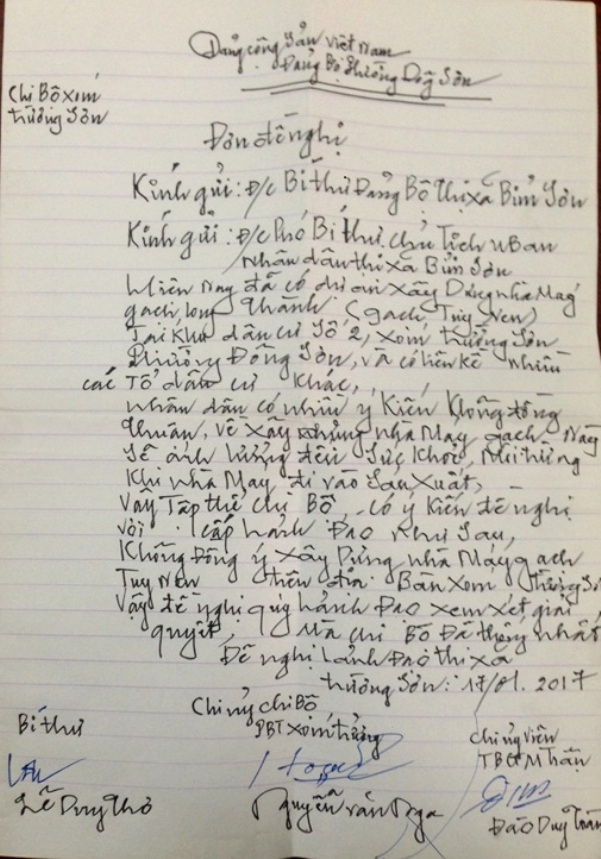 Đảng cộng sản việt nam
Đảng Bộ phường Đông Sơn
Chi Bộ xóm
trường Sơn
Đơn đề nghị
Kính gửi: Đ/c Bí thư Đảng Bộ thị xã Bỉm Sơn
Kính gửi: Đ/c Phó Bí thư, chủ tịch uBan
nhân dân thị xã Bỉm Sơn
Hiện nay đã có dự án xây Dựng nhà Máy
gạch, long thành (gạch Tuy nen)
Tại Khu dân cư số 2, xóm trường Sơn
phường Đông Sơn, và có liền kề nhiều
các Tổ dân cư Khác,
nhân dân có nhiều ý Kiến Không đồng
thuận, về xây nhà Máy gạch này
sẽ ảnh hưởng đến Sức Khỏe, Môi trường
Khi nhà Máy đi vào Sản Xuất,
Vậy Tập thể chi Bộ, có ý Kiến đề nghị
với cấp Lãnh Đạo như Sau,
Không Đồng ý xây Dựng nhà Máy gạch
Tuy Nen trên địa Bàn xóm
Vậy đề nghị quý Lãnh Đạo xem xét giải
quyết, Mà chi Bộ Đã thống nhất
Đề nghị Lãnh Đạo thị xã
trường Sơn: 17/01. 2017
Chi ủy chi Bộ
Bí thư
PBT xóm trưởng
chi ủy viên
TBCT Mtrận
Lê Duy Thọ
Nguyễn văn Nga
Đào Duy